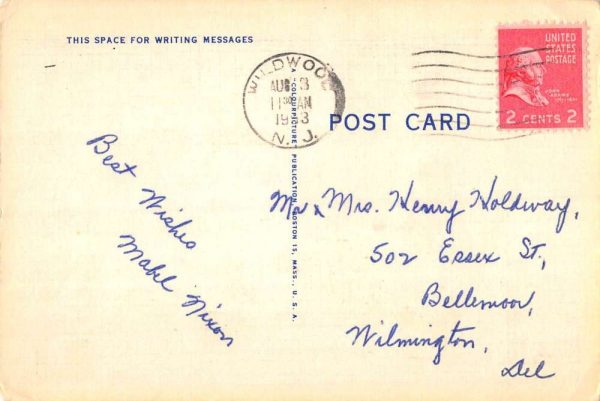 THIS SPACE FOR WRITING MESSAGES
WILDWOOD
AUG 3
11 30 AM
19 3
N. J.
POST CARD
UNITED
STATES
POSTAGE
JOHN
ADAMS
2 CENTS 2
"COLOURPICTURE" PUBLICATION BOSTON 15, MASS., U. S. A.
Best Wishes
Mabel Nixon
Mr & Mrs. Henry Holdway,
502 Essex St.,
Bellemoor,
Wilmington,
Del